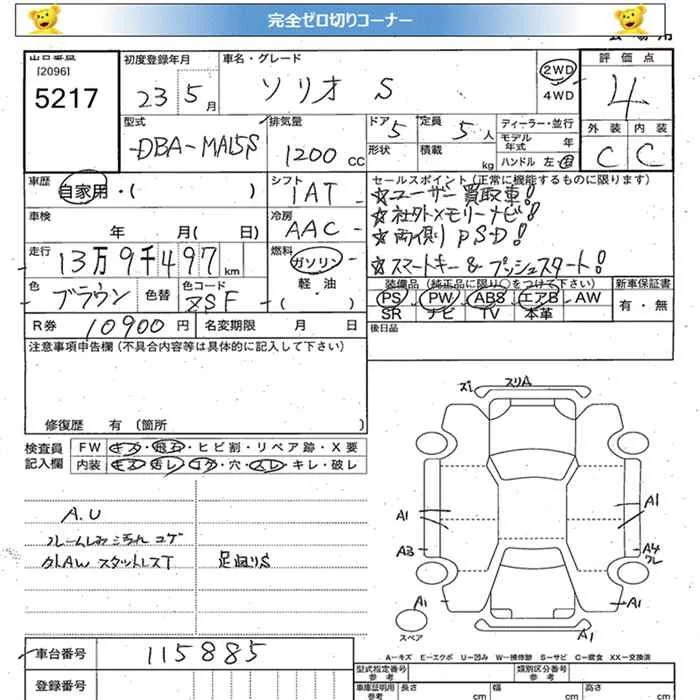 完全ゼロ切りコーナー
出品番号 初度登録年月 車名・グレード 評価点
[2096]
5217 23年5月 ソリオ S 2WD 4WD 4
型式 排気量 ドア 定員 ディーラー・並行 外装 内装
DBA-MA15S 1200cc 5 5人 モデル年式 年 C C
形状 積載 kg ハンドル 左・右
車歴 シフト セールスポイント(正常に機能するものに限ります)
自家用・( ) IAT ☆ユーザー買取車!
車検 冷房 ☆社外メモリーナビ!
年 月( 日) AAC ☆両側PSD!
走行 燃料
13万9千497km ガソリン ☆スマートキー&プッシュスタート!
色 色替 色コード 軽・油 装備品(純正品に限り○をつけて下さい) 新車保証書
ブラウン ZSF ( ) PS PW ABS エアB AW 有・無
SR ナビ TV 本革
R券 10900円 名変期限 月 日 後日品
注意事項申告欄(不具合内容等は具体的に記入して下さい)
修復歴 有(箇所 )
検査員 FW キズ・飛石・ヒビ割・リペア跡・X要
記入欄 内装 キズ・汚レ・コゲ・穴・スレ・キレ・破レ
スリA
A1 A1
A3 A4
A1 A1
A1
A.U
外AW スタットレスT 足廻りS
スペア
A-キズ E-エクボ U-凹み W-補修跡 S-サビ C-腐食 XX-交換済
車台番号 115885
型式指定番号 類別区分番号
参考 参考
登録番号 車庫証明用 長さ 幅 高さ
参考 cm cm cm